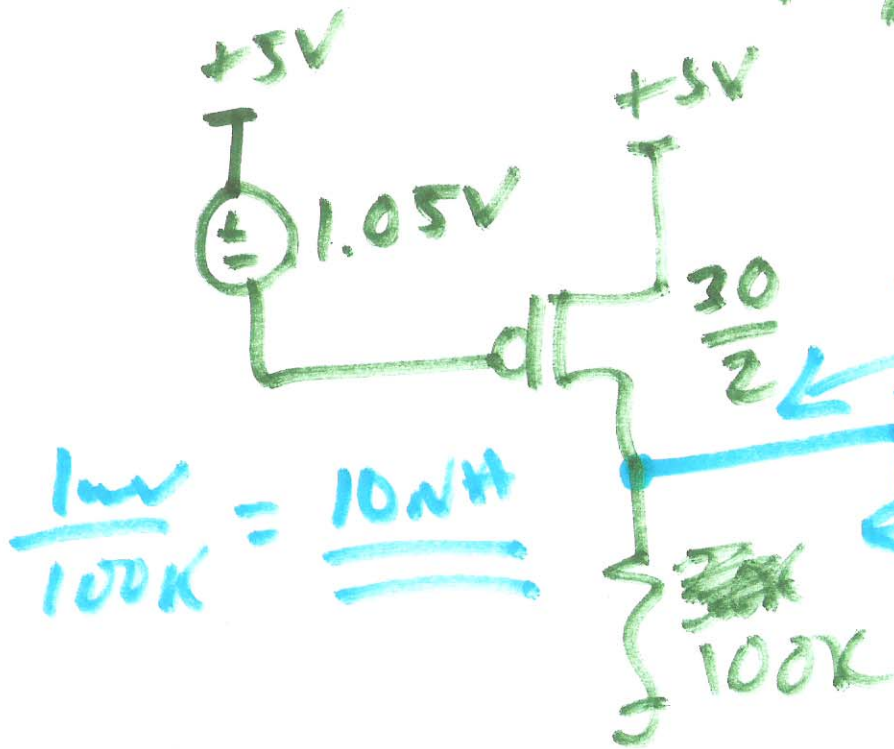 +5V
+5V
± 1.05V
30
2
1mV
100K
= 10NH
100K